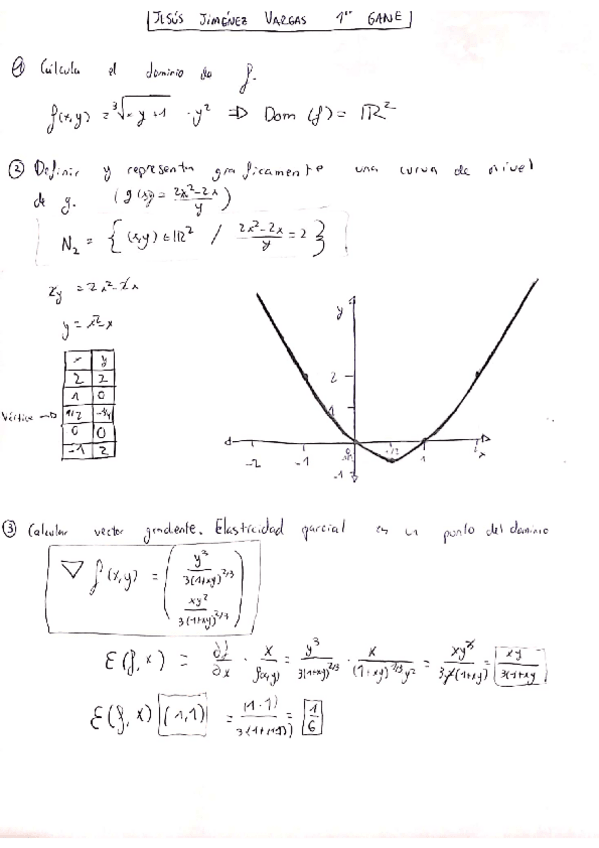 JESÚS JIMÉNEZ VARGAS 1er GANE
① Calcula el dominio de f.
f(x,y) = ∛(xy+1) · y² ⇒ Dom (f) = ℝ²
② Definir y representa graficamente una curva de nivel
de g. (g(x,y) = (2x²-2x)/y)
N₂ = { (x,y) ∈ ℝ² / (2x²-2x)/y = 2 }
2y = 2x²-2x
y = x²-x
x y
2 2
1 0
Vértice → 1/2 -1/4
0 0
-1 2
y
2
1
-2 -1 0 1/2 1 2 x
-1
③ Calcular vector gradiente. Elasticidad parcial en un punto del dominio
∇ f(x,y) = ( y³/(3(1+xy)^2/3) xy²/(3(1+xy)^2/3) )
E(f,x) = ∂f/∂x · x/f(x,y) = y³/(3(1+xy)^2/3) · x/((1+xy)^1/3 y²) = xy³/(3y²(1+xy)) = xy/(3(1+xy)
E(f,x) (1,1) = (1·1)/(3(1+1·1)) = 1/6